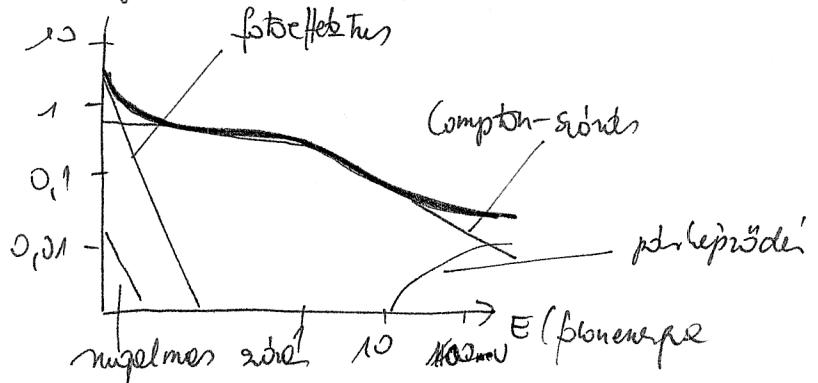 10
fotoeffektus
1
Compton-szórás
0,1
0,01
párképződés
rugalmas szórás
1
10
100 MeV
E (fotonenergia